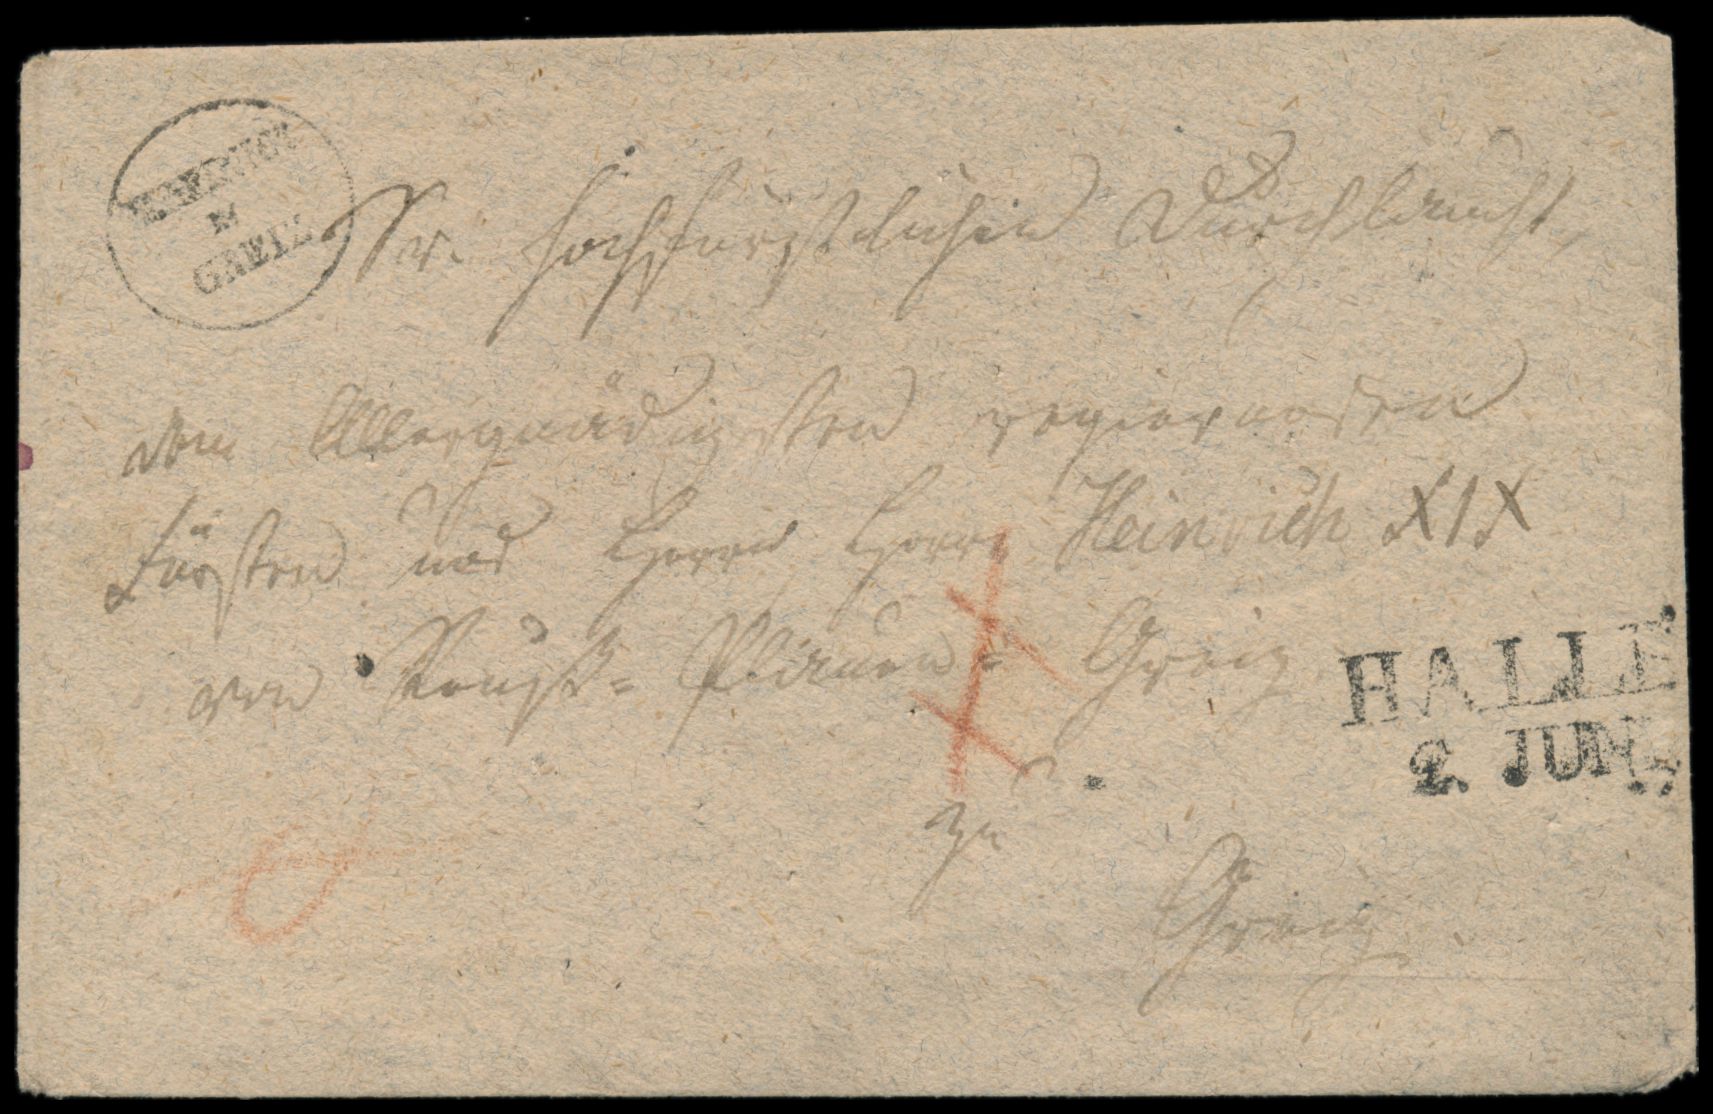 GREIZ
Sr. Hochfürstlichen Durchlaucht,
dem Allergnädigsten regierenden
Fürsten und Herrn Herrn Heinrich XIX
von Reuß- Plauen- Greiz
HALLE
2. JUN
zu
Greiz